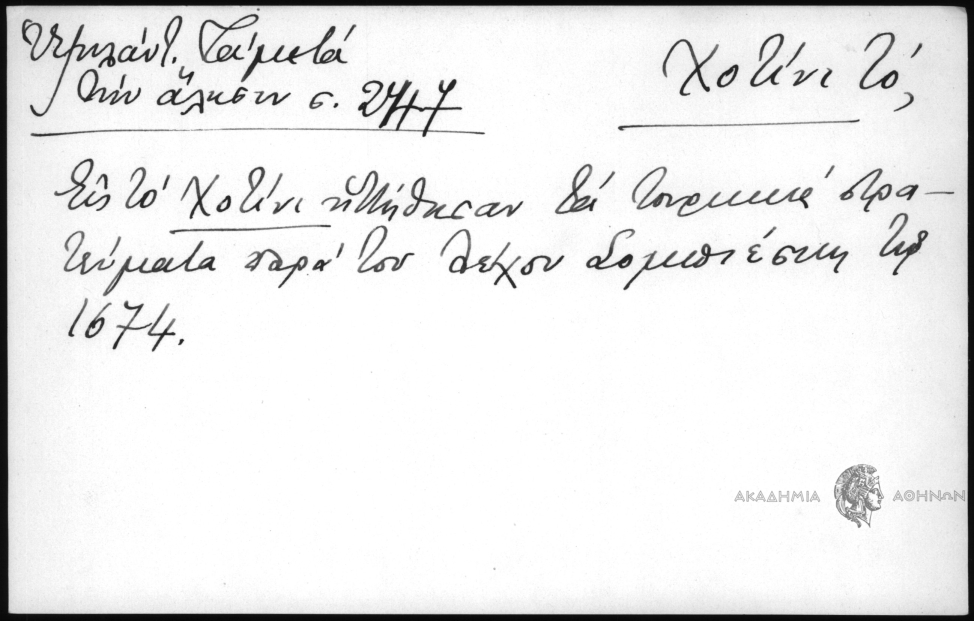 Ὑψηλάντ. Τά μετά
τήν ἅλωσιν σ. 247
Χοτίνι τό,
Εἰς τό Χοτίνι ἡττήθησαν τά τουρκικά στρα-
τεύματα παρά του Λέχου Σομπιέσκη τῷ
1674.
ΑΚΑΔΗΜΙΑ ΑΘΗΝΩΝ